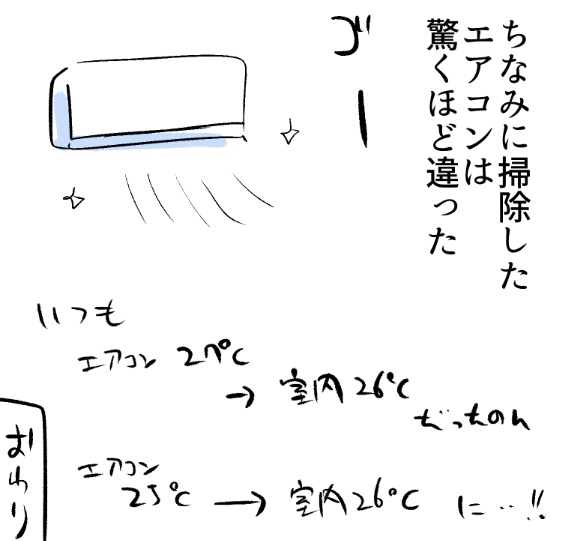 ちなみに掃除した
エアコンは
驚くほど違った
ゴー
いつも
エアコン 27℃
→ 室内26℃
だったのが
エアコン
25℃ → 室内26℃ に…!!
おわり